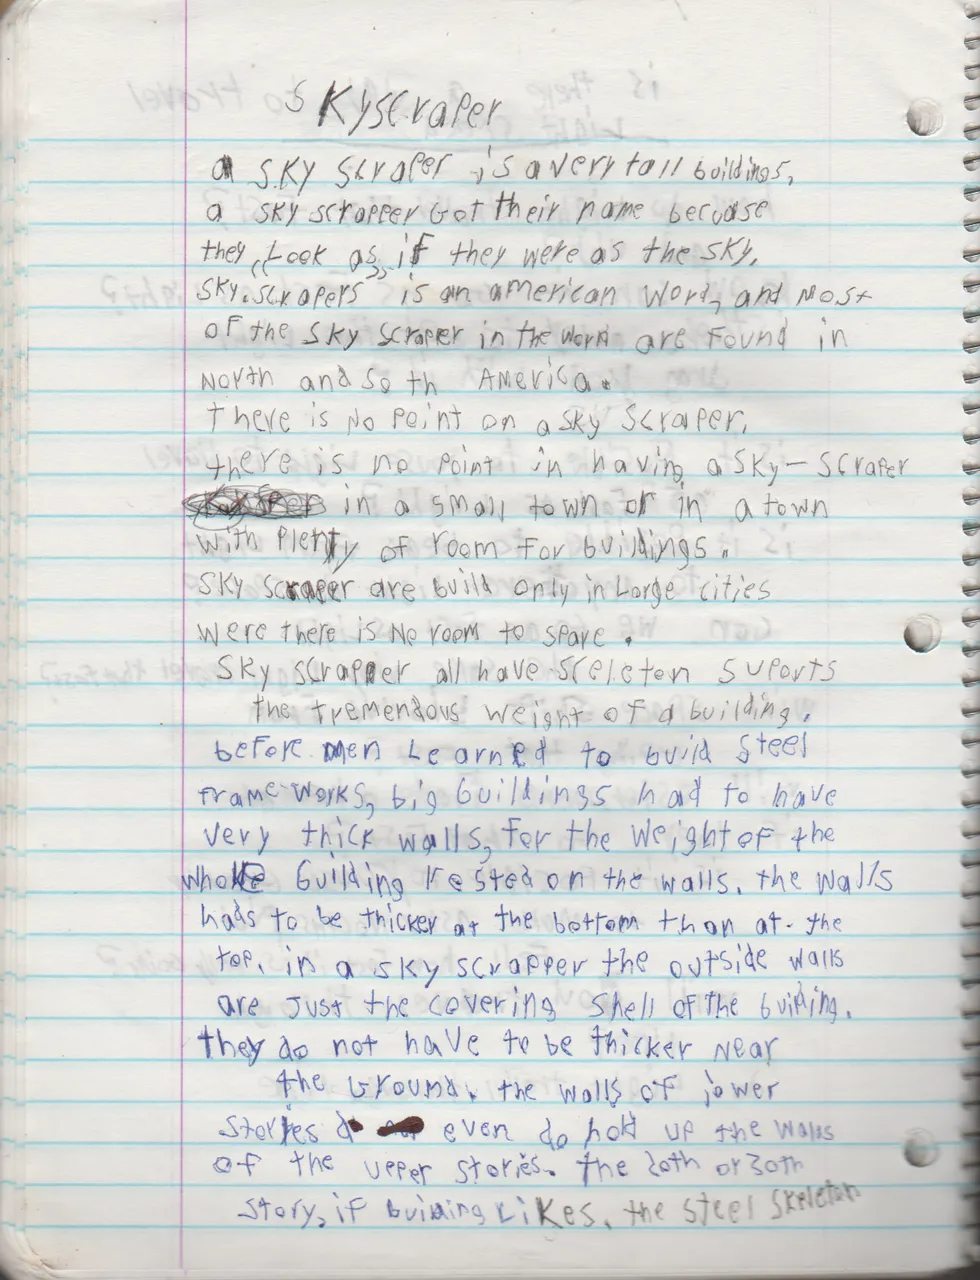 sKyscraper
a sky scraper is a very tall buildings,
a sky scrapper Got their name becuase
they "Look as if they were as the sky.
sky.scrapers" is an american Word, and Most
of the sky scraper in the World are found in
North and So th America.
there is No Point on a sky scraper.
there is no point in having a sky-scraper
in a small town or in a town
with plenty of room for buildings.
sky scraper are build only in Large cities
were there is No room to spare.
sky scrapper all have sceleton suports
the tremendous weight of a building.
before men Learned to build steel
frame works, big buildings had to have
very thick walls, for the weight of the
whole building rested on the walls. the walls
hads to be thicker at the bottom than at the
top. in a sky scrapper the outside walls
are just the covering shell of the building.
they do not have to be thicker Near
the Ground. the walls of lower
stories even do hold up the walls
of the upper stories. the 20th or 30th
story, if building Likes. the steel skeleton